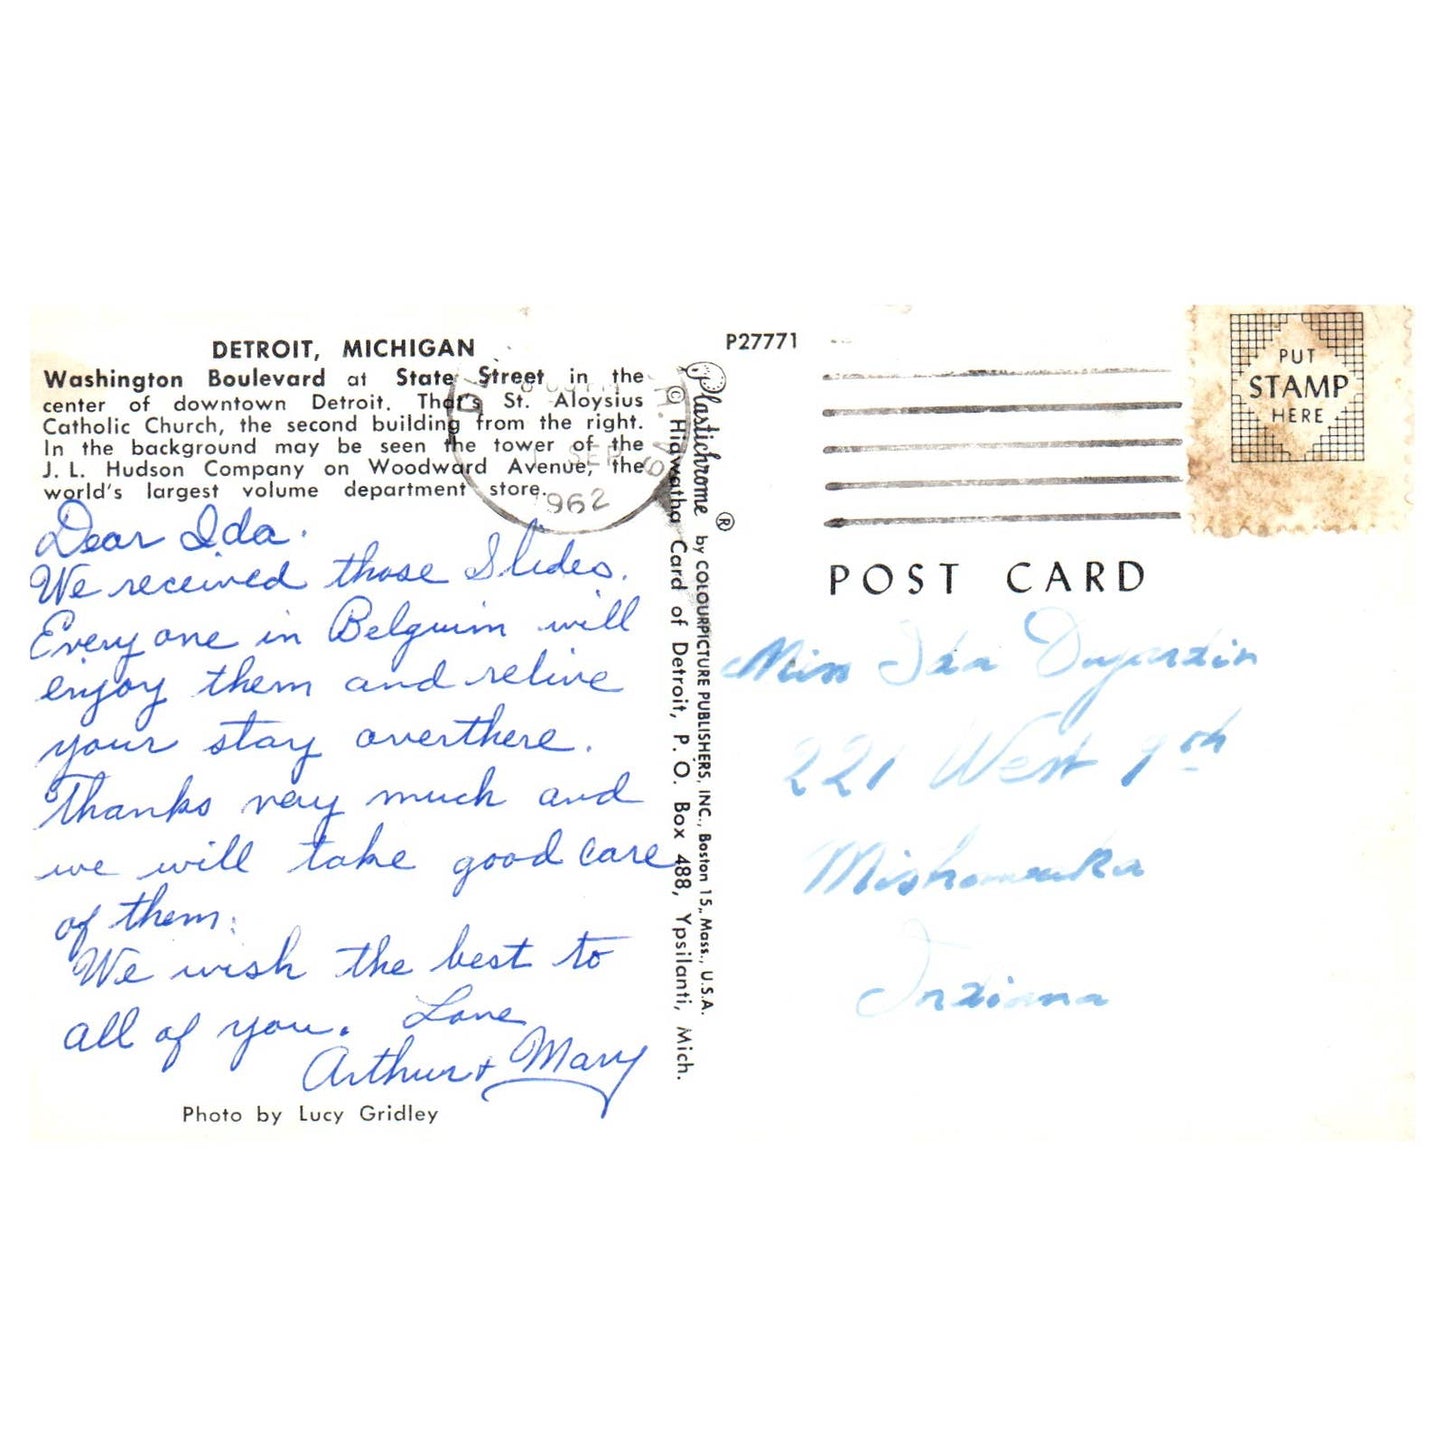 DETROIT, MICHIGAN
Washington Boulevard at State Street in the
center of downtown Detroit. That's St. Aloysius
Catholic Church, the second building from the right.
In the background may be seen the tower of the
J. L. Hudson Company on Woodward Avenue, the
world's largest volume department store.
Dear Ida.
We received those Slides.
Everyone in Belguim will
enjoy them and relive
your stay overthere.
Thanks very much and
we will take good care
of them.
We wish the best to
all of you. Love
Arthur + Mary
Photo by Lucy Gridley
SEP
1962
Plastichrome ® by COLOURPICTURE PUBLISHERS, INC., Boston 15, Mass., U.S.A.
© Hiawatha Card of Detroit, P. O. Box 488, Ypsilanti, Mich.
P27771
PUT
STAMP
HERE
POST CARD
Miss Ida Dujardin
221 West 9th
Mishawaka
Indiana